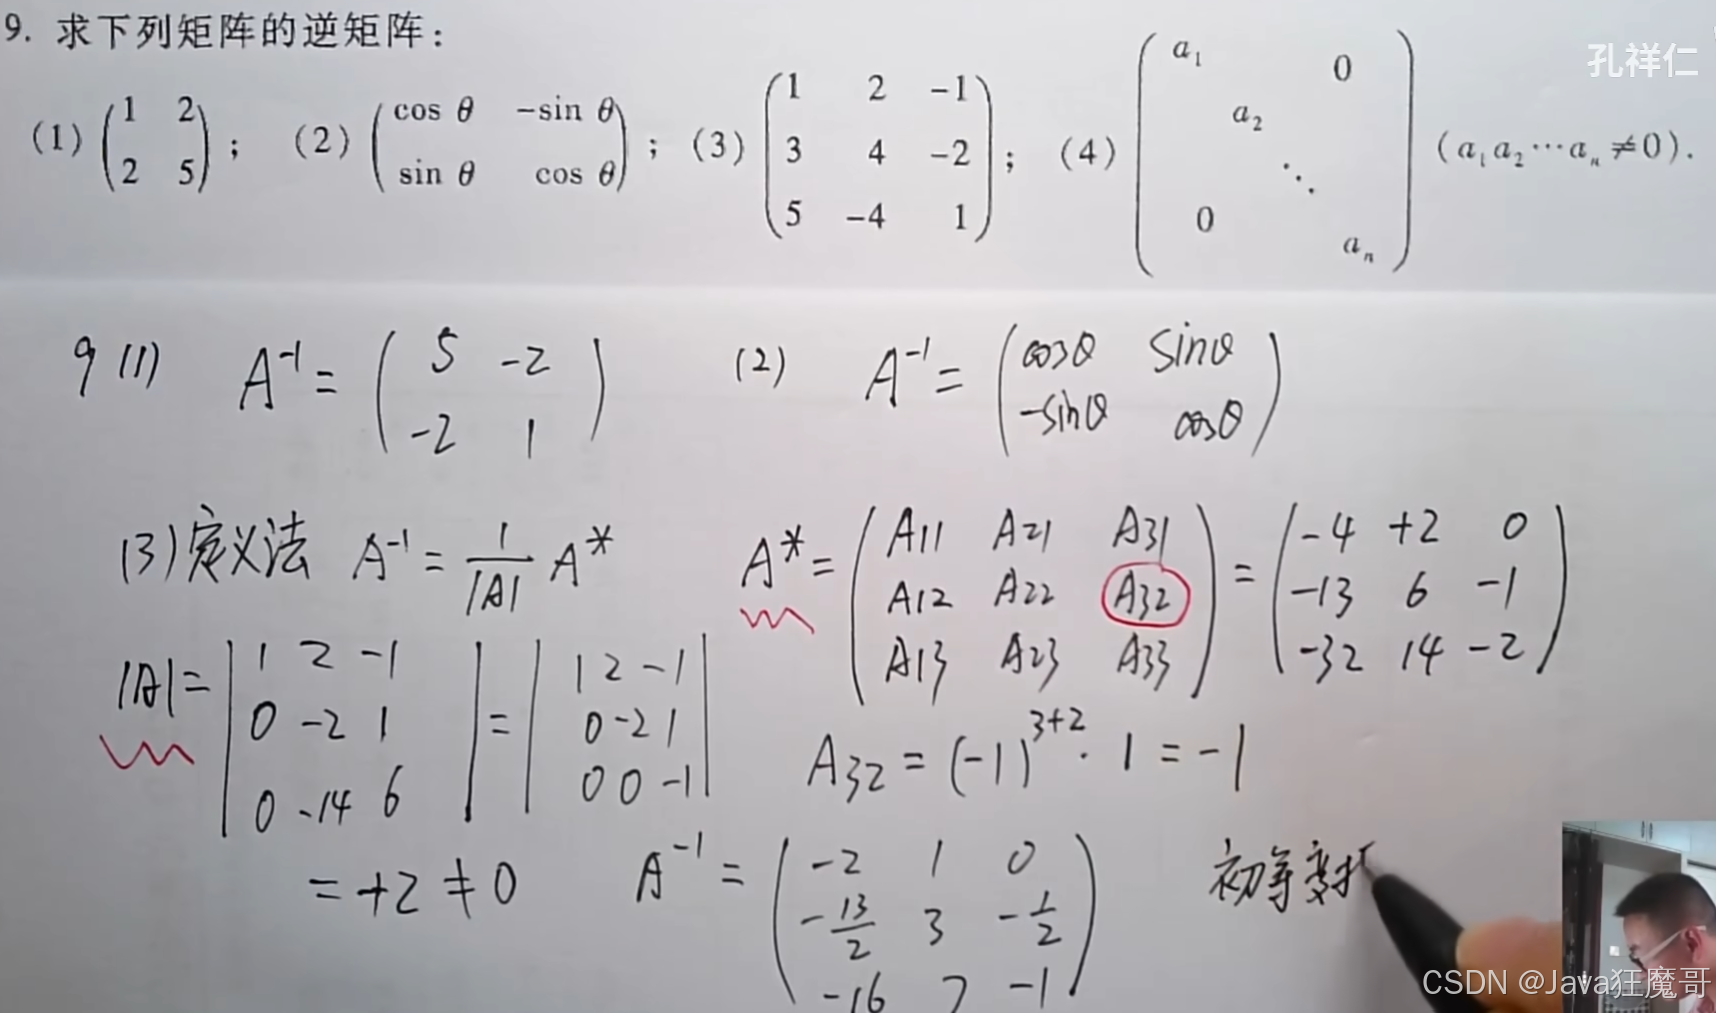 9. 求下列矩阵的逆矩阵:
孔祥仁
(1) (1 2; 2 5); (2) (cos θ -sin θ; sin θ cos θ); (3) (1 2 -1; 3 4 -2; 5 -4 1); (4) (a₁ 0; a₂; ⋱; 0 aₙ) (a₁a₂⋯aₙ≠0).
9 (1) A⁻¹ = (5 -2; -2 1) (2) A⁻¹ = (cosθ sinθ; -sinθ cosθ)
(3) 定义法 A⁻¹ = 1/|A| A* A* = (A11 A21 A31; A12 A22 A32; A13 A23 A33) = (-4 +2 0; -13 6 -1; -32 14 -2)
|A| = |1 2 -1; 0 -2 1; 0 -14 6| = |1 2 -1; 0 -2 1; 0 0 -1|
A32 = (-1)³⁺² · 1 = -1
= +2 ≠ 0 A⁻¹ = (-2 1 0; -13/2 3 -1/2; -16 7 -1)
初等变
CSDN @Java狂魔哥